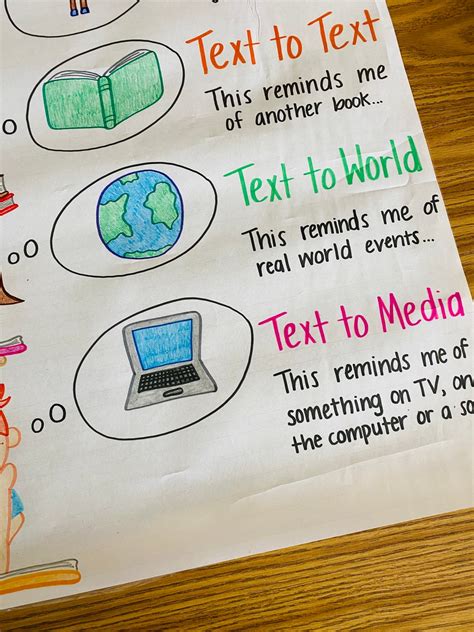 Text to Text
This reminds me
of another book...
Text to World
This reminds me of
real world events...
Text to Media
This reminds me of
something on TV, on
the computer or a